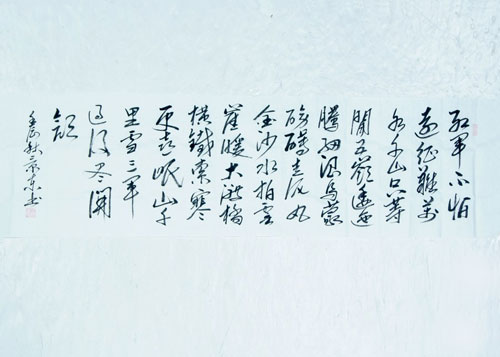 紅軍不怕
遠征難萬
水千山只等
閒五嶺逶迤
騰細浪烏蒙
磅礴走泥丸
金沙水拍雲
崖暖大渡橋
橫鐵索寒
更喜岷山千
里雪三軍
過後盡開
顏